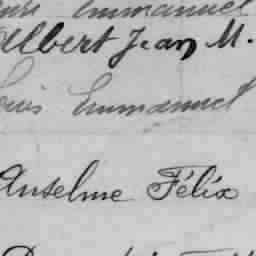 Emmanuel
Albert Jean M.
Louis Emmanuel
Anselme Félix